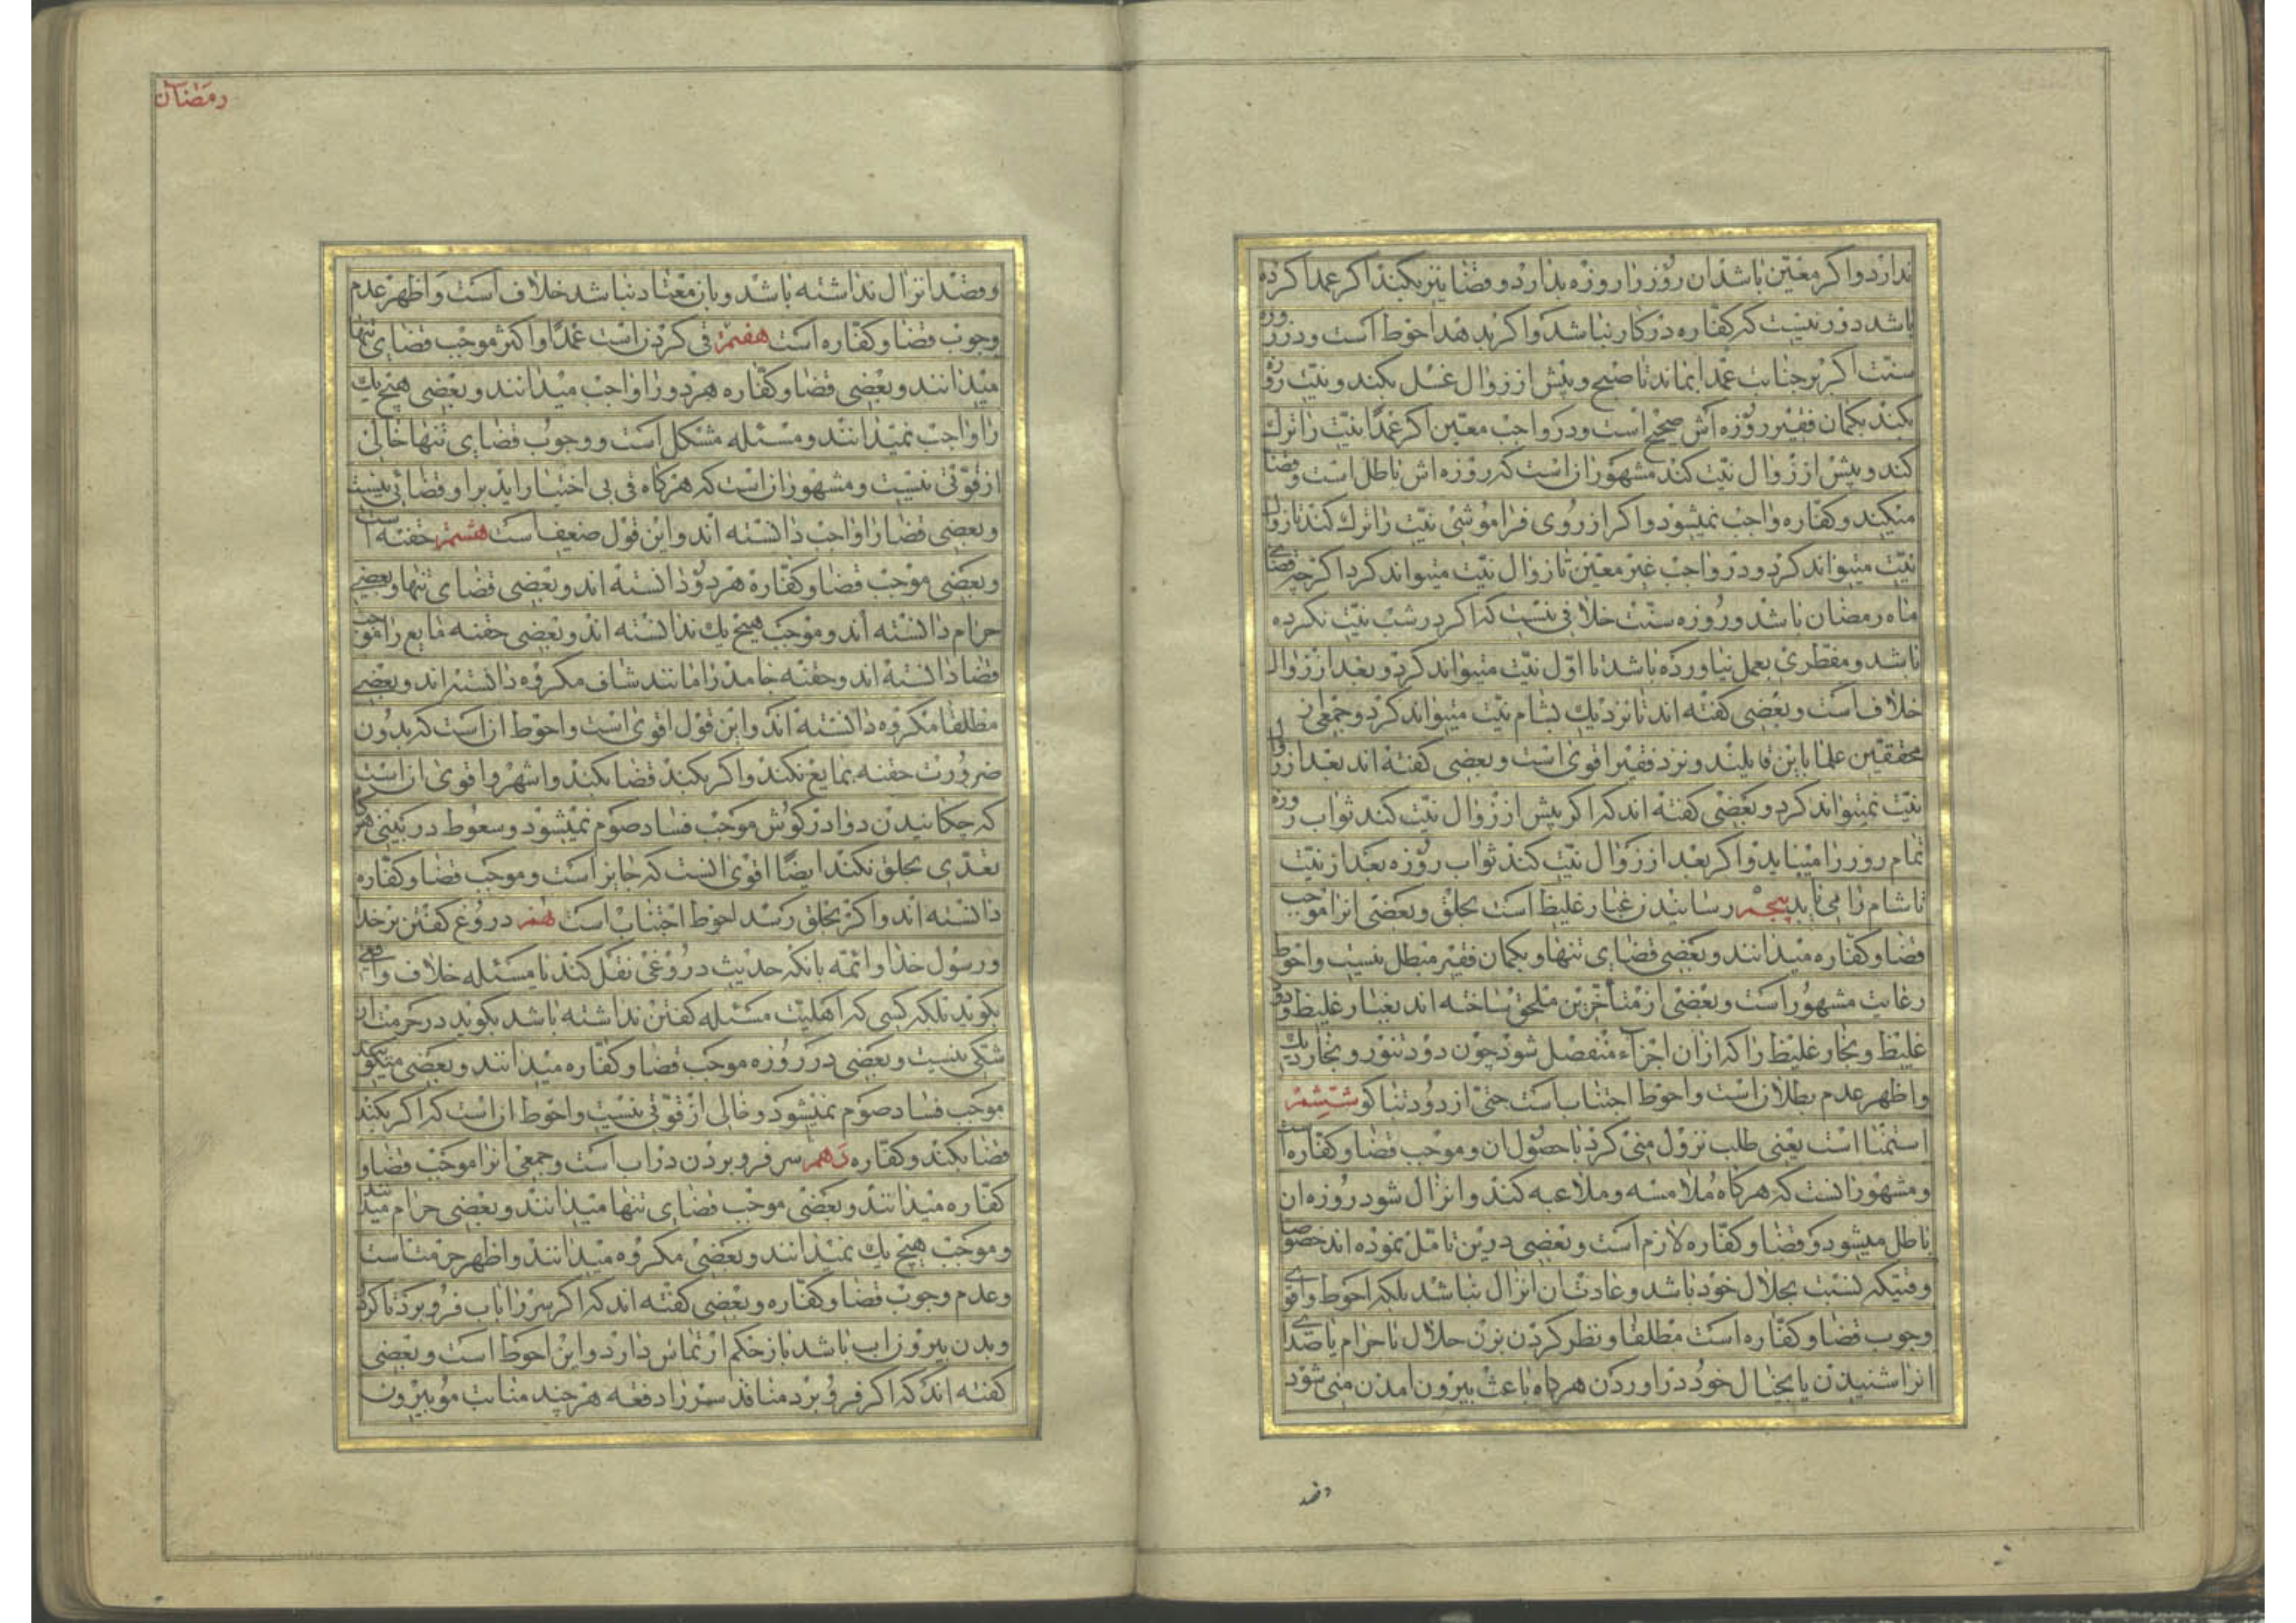 ندارد و اکر معین باشد ان روز را روزه بدارد و قضا نیز بکند اکر عمدا کرده
باشد دور نیست که کفاره در کار نباشد و اکر بدهد احوط است و در روزه
سنت اکر بر جنابت عمدا بماند تا صبح و پیش از زوال غسل بکند و نیت روزه
بکند بکمان فقیر روزه اش صحیح است و در واجب معین اکر عمدا نیت را ترک
کند و پیش از زوال نیت کند مشهور ان است که روزه اش باطل است و قضا
میکند و کفاره واجب نمیشود و اکر از روی فراموشی نیت را ترک کند تا زوال
نیت میتواند کرد و در واجب غیر معین تا زوال نیت میتواند کرد اکرچه قضای
ماه رمضان باشد و روزه سنت خلافی نیست که اکر در شب نیت نکرده
باشد و مفطری بعمل نیاورده باشد تا اول نیت میتواند کرد و بعد از زوال
خلاف است و بعضی کفته اند تا نزدیک بشام نیت میتواند کرد و جمعی از
محققین علما باین قایلند و نزد فقیر اقوی است و بعضی کفته اند بعد از زوال
نیت نمیتواند کرد و بعضی کفته اند که اکر پیش از زوال نیت کند ثواب روزه
تمام روز را مییابد و اکر بعد از زوال نیت کند ثواب روزه بعد از نیت
تا شام را می یابد پنجم رسانیدن غبار غلیظ است بحلق و بعضی انرا موجب
قضا و کفاره میدانند و بعضی قضای تنها و بکمان فقیر مبطل نیست و احوط
رعایت مشهور است و بعضی از متأخرین ملحق ساخته اند بغبار غلیظ دود
غلیظ و بخار غلیظ را که ازان اجزاء منفصل شود چون دود تنور و بخار دیک
و اظهر عدم بطلان است و احوط اجتناب است حتی از دود تنباکو ششم
استمنا است یعنی طلب نزول منی کرد با حصول ان و موجب قضا و کفاره است
و مشهور انست که هرکاه ملامسه و ملاعبه کند و انزال شود روزه ان
باطل میشود و قضا و کفاره لازم است و بعضی درین تامل نموده اند خصوصا
وقتیکه نسبت بحلال خود باشد و عادتشان انزال نباشد بلکه احوط و اقوی
وجوب قضا و کفاره است مطلقا و نظر کردن بزن حلال یا حرام یا صدای
انرا شنیدن یا بخیال خود در اوردن هرکاه باعث بیرون امدن منی شود
رمضان
و قصد انزال نداشته باشد و بان معتاد نباشد خلاف است و اظهر عدم
وجوب قضا و کفاره است هفتم قی کردن است عمدًا و اکثر موجب قضای تنها
میدانند و بعضی قضا و کفاره هر دو را واجب میدانند و بعضی هیچ یک
را واجب نمیدانند و مسئله مشکل است و وجوب قضای تنها خالی
از قوتی نیست و مشهور ان است که هرکاه قی بی اختیار اید بر او قضائی نیست
و بعضی قضا را واجب دانسته اند و این قول ضعیف است هشتم حقنه است
و بعضی موجب قضا و کفاره هر دو دانسته اند و بعضی قضای تنها و بعضی
حرام دانسته اند و موجب هیچ یک ندانسته اند و بعضی حقنه مایع را موجب
قضا دانسته اند و حقنه جامد را مانند شاف مکروه دانسته اند و بعضی
مطلقا مکروه دانسته اند و این قول اقوی است و احوط ان است که بدون
ضرورت حقنه بمایع نکند و اکر بکند قضا بکند و اشهر و اقوی ان است
که چکانیدن دوا در کوش موجب فساد صوم نمیشود و سعوط در بینی هرکاه
تعدی بحلق نکند ایضًا اقوی انست که جایز است و موجب قضا و کفاره
دانسته اند و اکر بحلق رسد احوط اجتناب است نهم دروغ کفتن بر خدا
و رسول خدا و ائمه بانکه حدیث دروغی نقل کند یا مسئله خلاف واقعی
بکوید بلکه کسی که اهلیت مسئله کفتن نداشته باشد بکوید در حرمت ان
شکی نیست و بعضی در روزه موجب قضا و کفاره میدانند و بعضی میکویند
موجب فساد صوم نمیشود و خالی از قوتی نیست و احوط ان است که اکر بکند
قضا بکند و کفاره دهم سر فرو بردن در اب است و جمعی انرا موجب قضا و
کفاره میدانند و بعضی موجب قضای تنها میدانند و بعضی حرام میدانند
و موجب هیچ یک نمیدانند و بعضی مکروه میدانند و اظهر حرمت است
و عدم وجوب قضا و کفاره و بعضی کفته اند که اکر سر را باب فرو برد تا کردن
و بدن بیرون اب باشد باز حکم ارتماس دارد و این احوط است و بعضی
کفته اند که اکر فرو برد منافذ سر را دفعه هرچند منابت مو بیرون